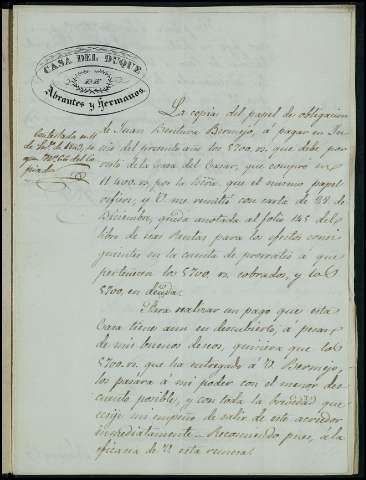 CASA DEL DUQUE
DE
Abrantes y Hermanos
Contestada en 11
de
La copia del papel de obligacion
de Juan Bermejo, á pagar en
del corriente año los 5700 rs. que debe por
resto de la Casa del Casar, que compró en
11.400 rs. por la que el mismo papel
refiere, y V. me remitió con carta de 28 de
Diciembre, queda anotada al folio 145 del
libro de sus Rentas para los efectos consi-
guientes en la cuenta de prorratéo á que
pertenecen los 5700 rs. cobrados, y los
5700, en deuda.
Para realizar un pago que esta
Casa tiene aun en descubierto, á pesar
de mis buenos deseos, quisiera que los
5700 rs. que ha entregado á V. Bermejo,
los pasára á mi poder con el menor des-
cuento posible, y con toda la brevedad que
exije mi empeño de salir de este acreedor
inmediatamente. Recomiendo pues, á la
eficacia de V. esta remesa.